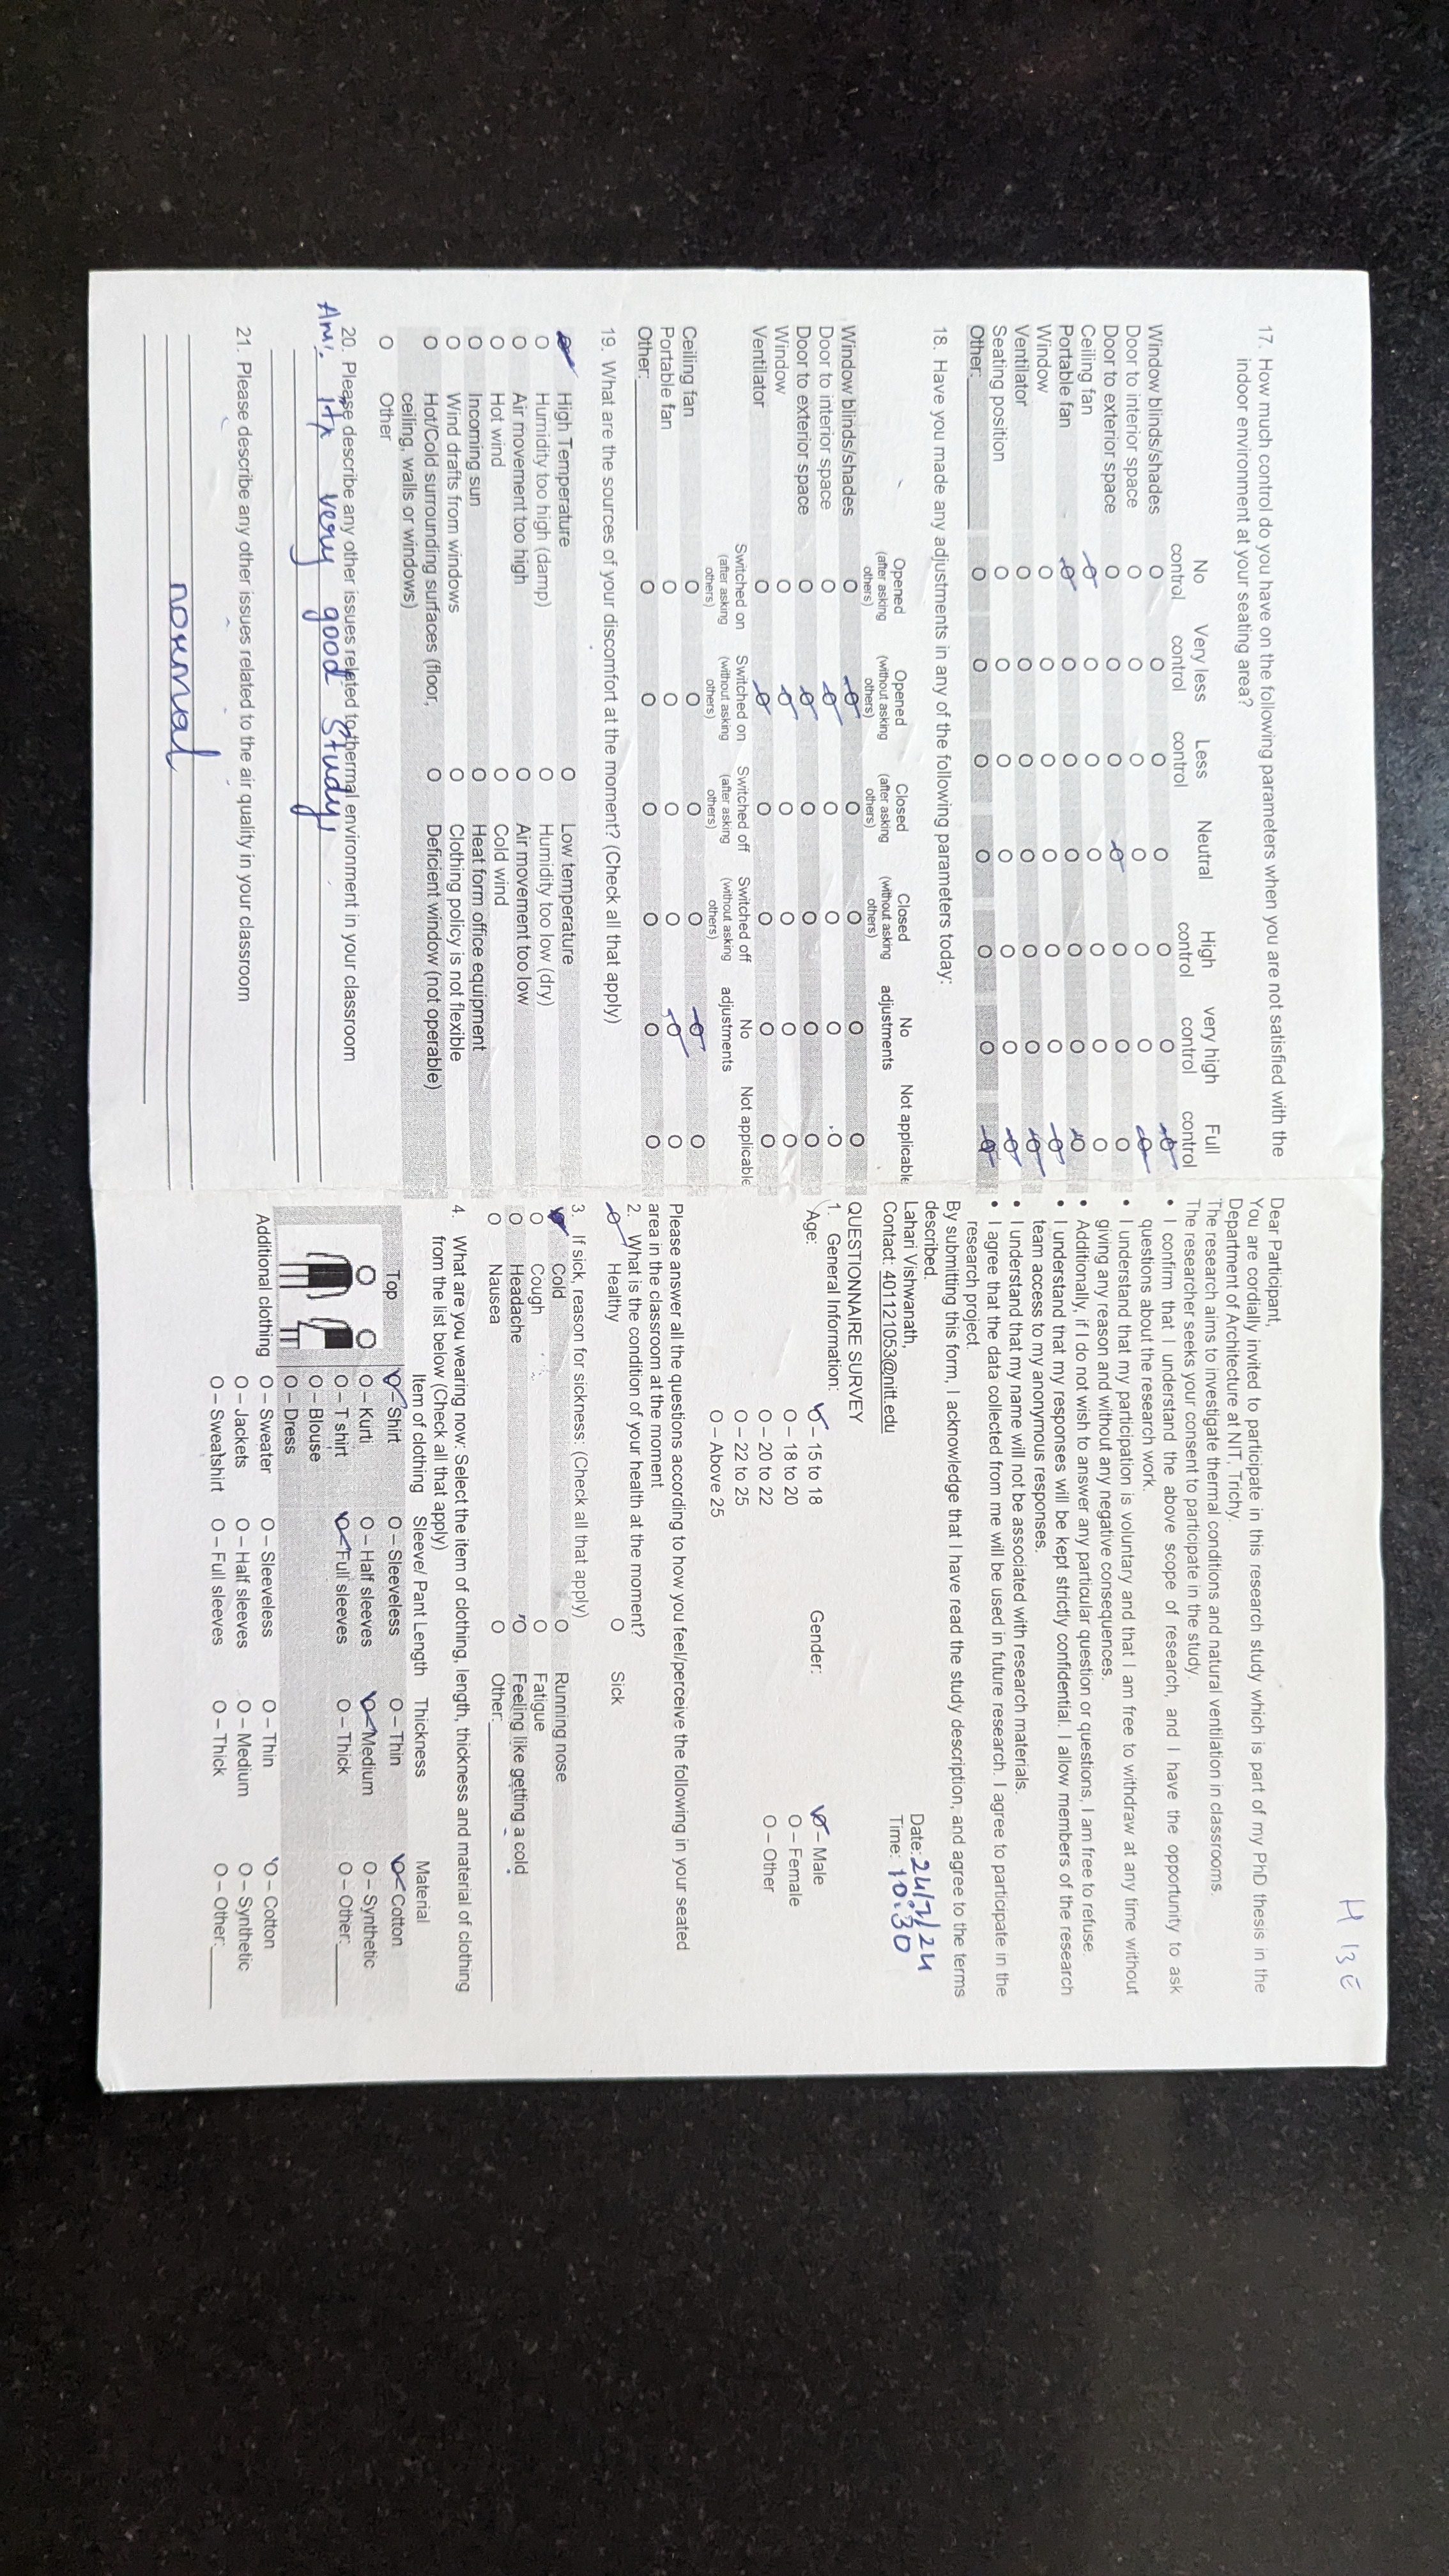 17. How much control do you have on the following parameters when you are not satisfied with the
indoor environment at your seating area?
No control Very less control Less control Neutral High control very high control Full control
Window blinds/shades O O O O O O O
Door to interior space O O O O O O O
Door to exterior space O O O O O O O
Ceiling fan O O O O O O O
Portable fan O O O O O O O
Window O O O O O O O
Ventilator O O O O O O O
Seating position O O O O O O O
Other:______ O O O O O O O
18. Have you made any adjustments in any of the following parameters today:
Opened (after asking others) Opened (without asking others) Closed (after asking others) Closed (without asking others) No adjustments Not applicable
Window blinds/shades O O O O O O
Door to interior space O O O O O O
Door to exterior space O O O O O O
Window O O O O O O
Ventilator O O O O O O
Switched on (after asking others) Switched on (without asking others) Switched off (after asking others) Switched off (without asking others) No adjustments Not applicable
Ceiling fan O O O O O O
Portable fan O O O O O O
Other:______ O O O O O O
19. What are the sources of your discomfort at the moment? (Check all that apply)
O High Temperature O Low temperature
O Humidity too high (damp) O Humidity too low (dry)
O Air movement too high O Air movement too low
O Hot wind O Cold wind
O Incoming sun O Heat form office equipment
O Wind drafts from windows O Clothing policy is not flexible
O Hot/Cold surrounding surfaces (floor, O Deficient window (not operable)
ceiling, walls or windows)
O Other
20. Please describe any other issues related to thermal environment in your classroom
very good study
21. Please describe any other issues related to the air quality in your classroom
normal
H 13E
Dear Participant,
You are cordially invited to participate in this research study which is part of my PhD thesis in the
Department of Architecture at NIT, Trichy.
The research aims to investigate thermal conditions and natural ventilation in classrooms.
The researcher seeks your consent to participate in the study.
• I confirm that I understand the above scope of research, and I have the opportunity to ask
questions about the research work.
• I understand that my participation is voluntary and that I am free to withdraw at any time without
giving any reason and without any negative consequences.
• Additionally, if I do not wish to answer any particular question or questions, I am free to refuse.
• I understand that my responses will be kept strictly confidential. I allow members of the research
team access to my anonymous responses.
• I understand that my name will not be associated with research materials.
• I agree that the data collected from me will be used in future research. I agree to participate in the
research project.
By submitting this form, I acknowledge that I have read the study description, and agree to the terms
described.
Lahari Vishwanath, Date: 24/7/24
Contact: 401121053@nitt.edu Time: 10:30
QUESTIONNAIRE SURVEY
1. General Information:
Age: O – 15 to 18 Gender: O – Male
O – 18 to 20 O – Female
O – 20 to 22 O – Other
O – 22 to 25
O – Above 25
Please answer all the questions according to how you feel/perceive the following in your seated
area in the classroom at the moment
2. What is the condition of your health at the moment?
O Healthy O Sick
3. If sick, reason for sickness: (Check all that apply)
O Cold O Running nose
O Cough O Fatigue
O Headache O Feeling like getting a cold
O Nausea O Other:______
4. What are you wearing now: Select the item of clothing, length, thickness and material of clothing
from the list below (Check all that apply)
Item of clothing Sleeve/ Pant Length Thickness Material
Top O – Shirt O – Sleeveless O – Thin O – Cotton
O O O – Kurti O – Half sleeves O – Medium O – Synthetic
O – T shirt O – Full sleeves O – Thick O – Other:______
O – Blouse
O – Dress
Additional clothing O – Sweater O – Sleeveless O – Thin O – Cotton
O – Jackets O – Half sleeves O – Medium O – Synthetic
O – Sweatshirt O – Full sleeves O – Thick O – Other:______